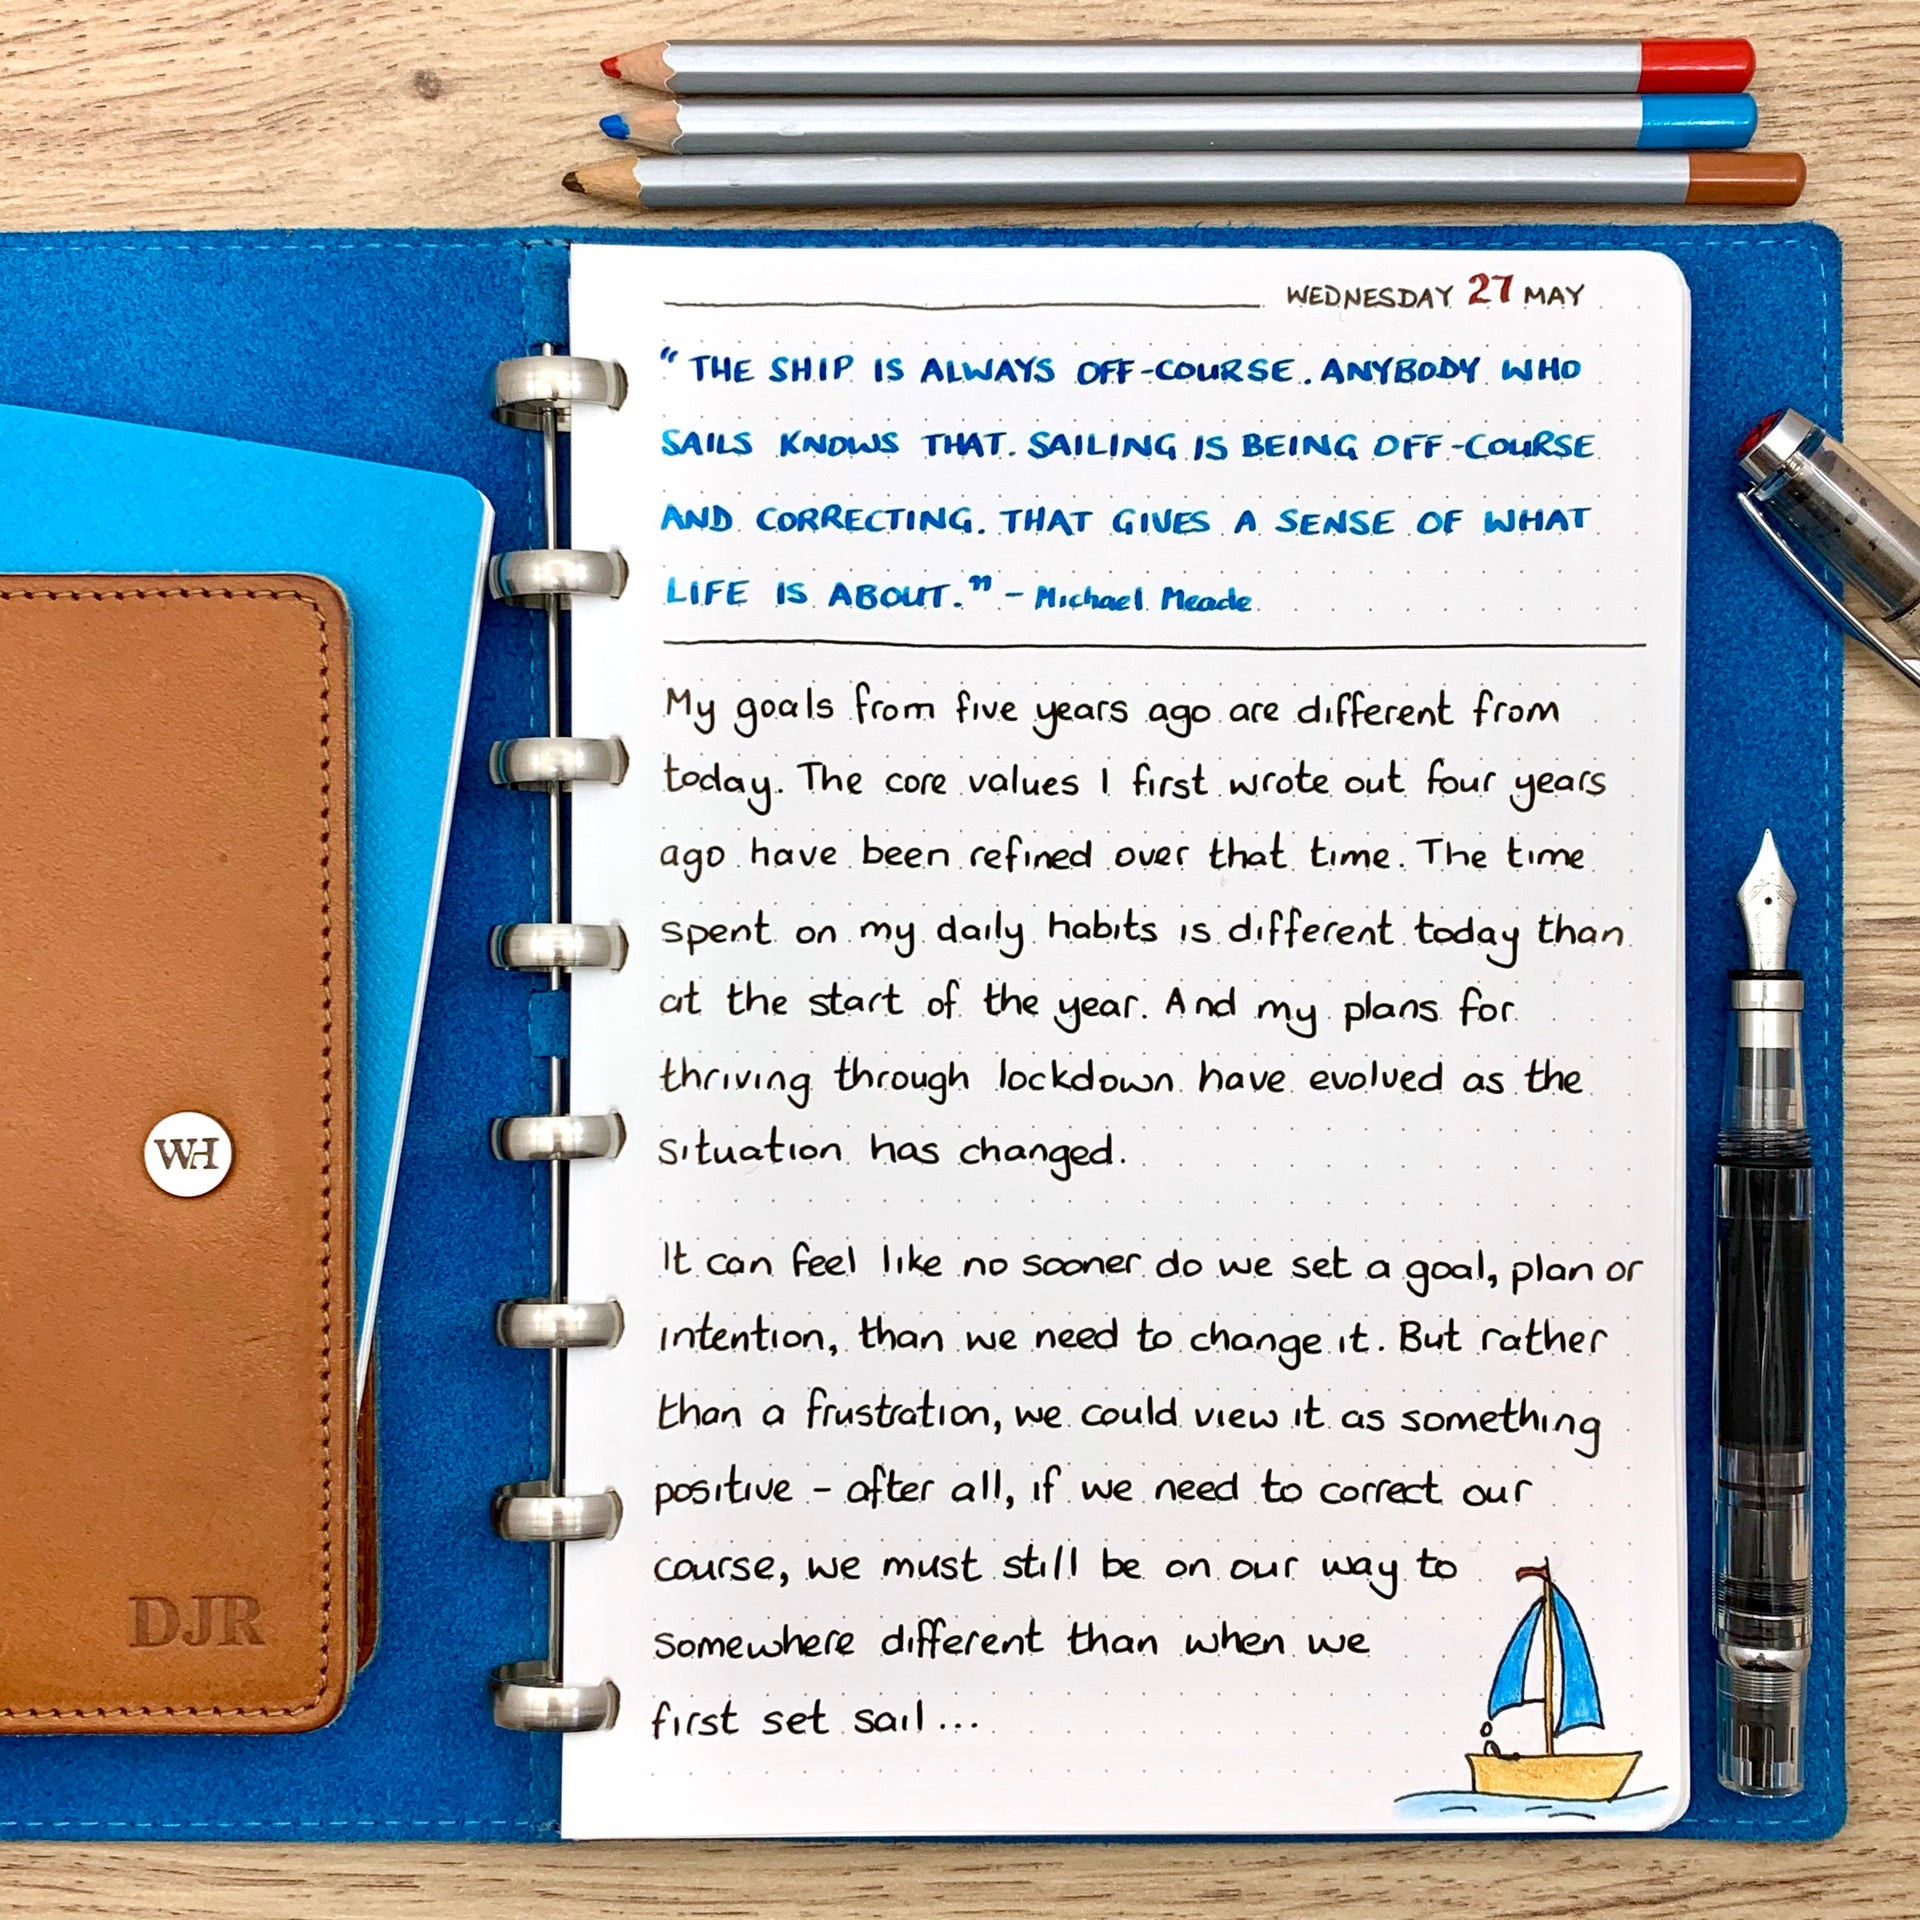 WEDNESDAY 27 MAY
“THE SHIP IS ALWAYS OFF-COURSE. ANYBODY WHO
SAILS KNOWS THAT. SAILING IS BEING OFF-COURSE
AND CORRECTING. THAT GIVES A SENSE OF WHAT
LIFE IS ABOUT.” - Michael Meade
My goals from five years ago are different from
today. The core values I first wrote out four years
ago have been refined over that time. The time
spent on my daily habits is different today than
at the start of the year. And my plans for
thriving through lockdown have evolved as the
situation has changed.
It can feel like no sooner do we set a goal, plan or
intention, than we need to change it. But rather
than a frustration, we could view it as something
positive - after all, if we need to correct our
course, we must still be on our way to
somewhere different than when we
first set sail...
WH
DJR